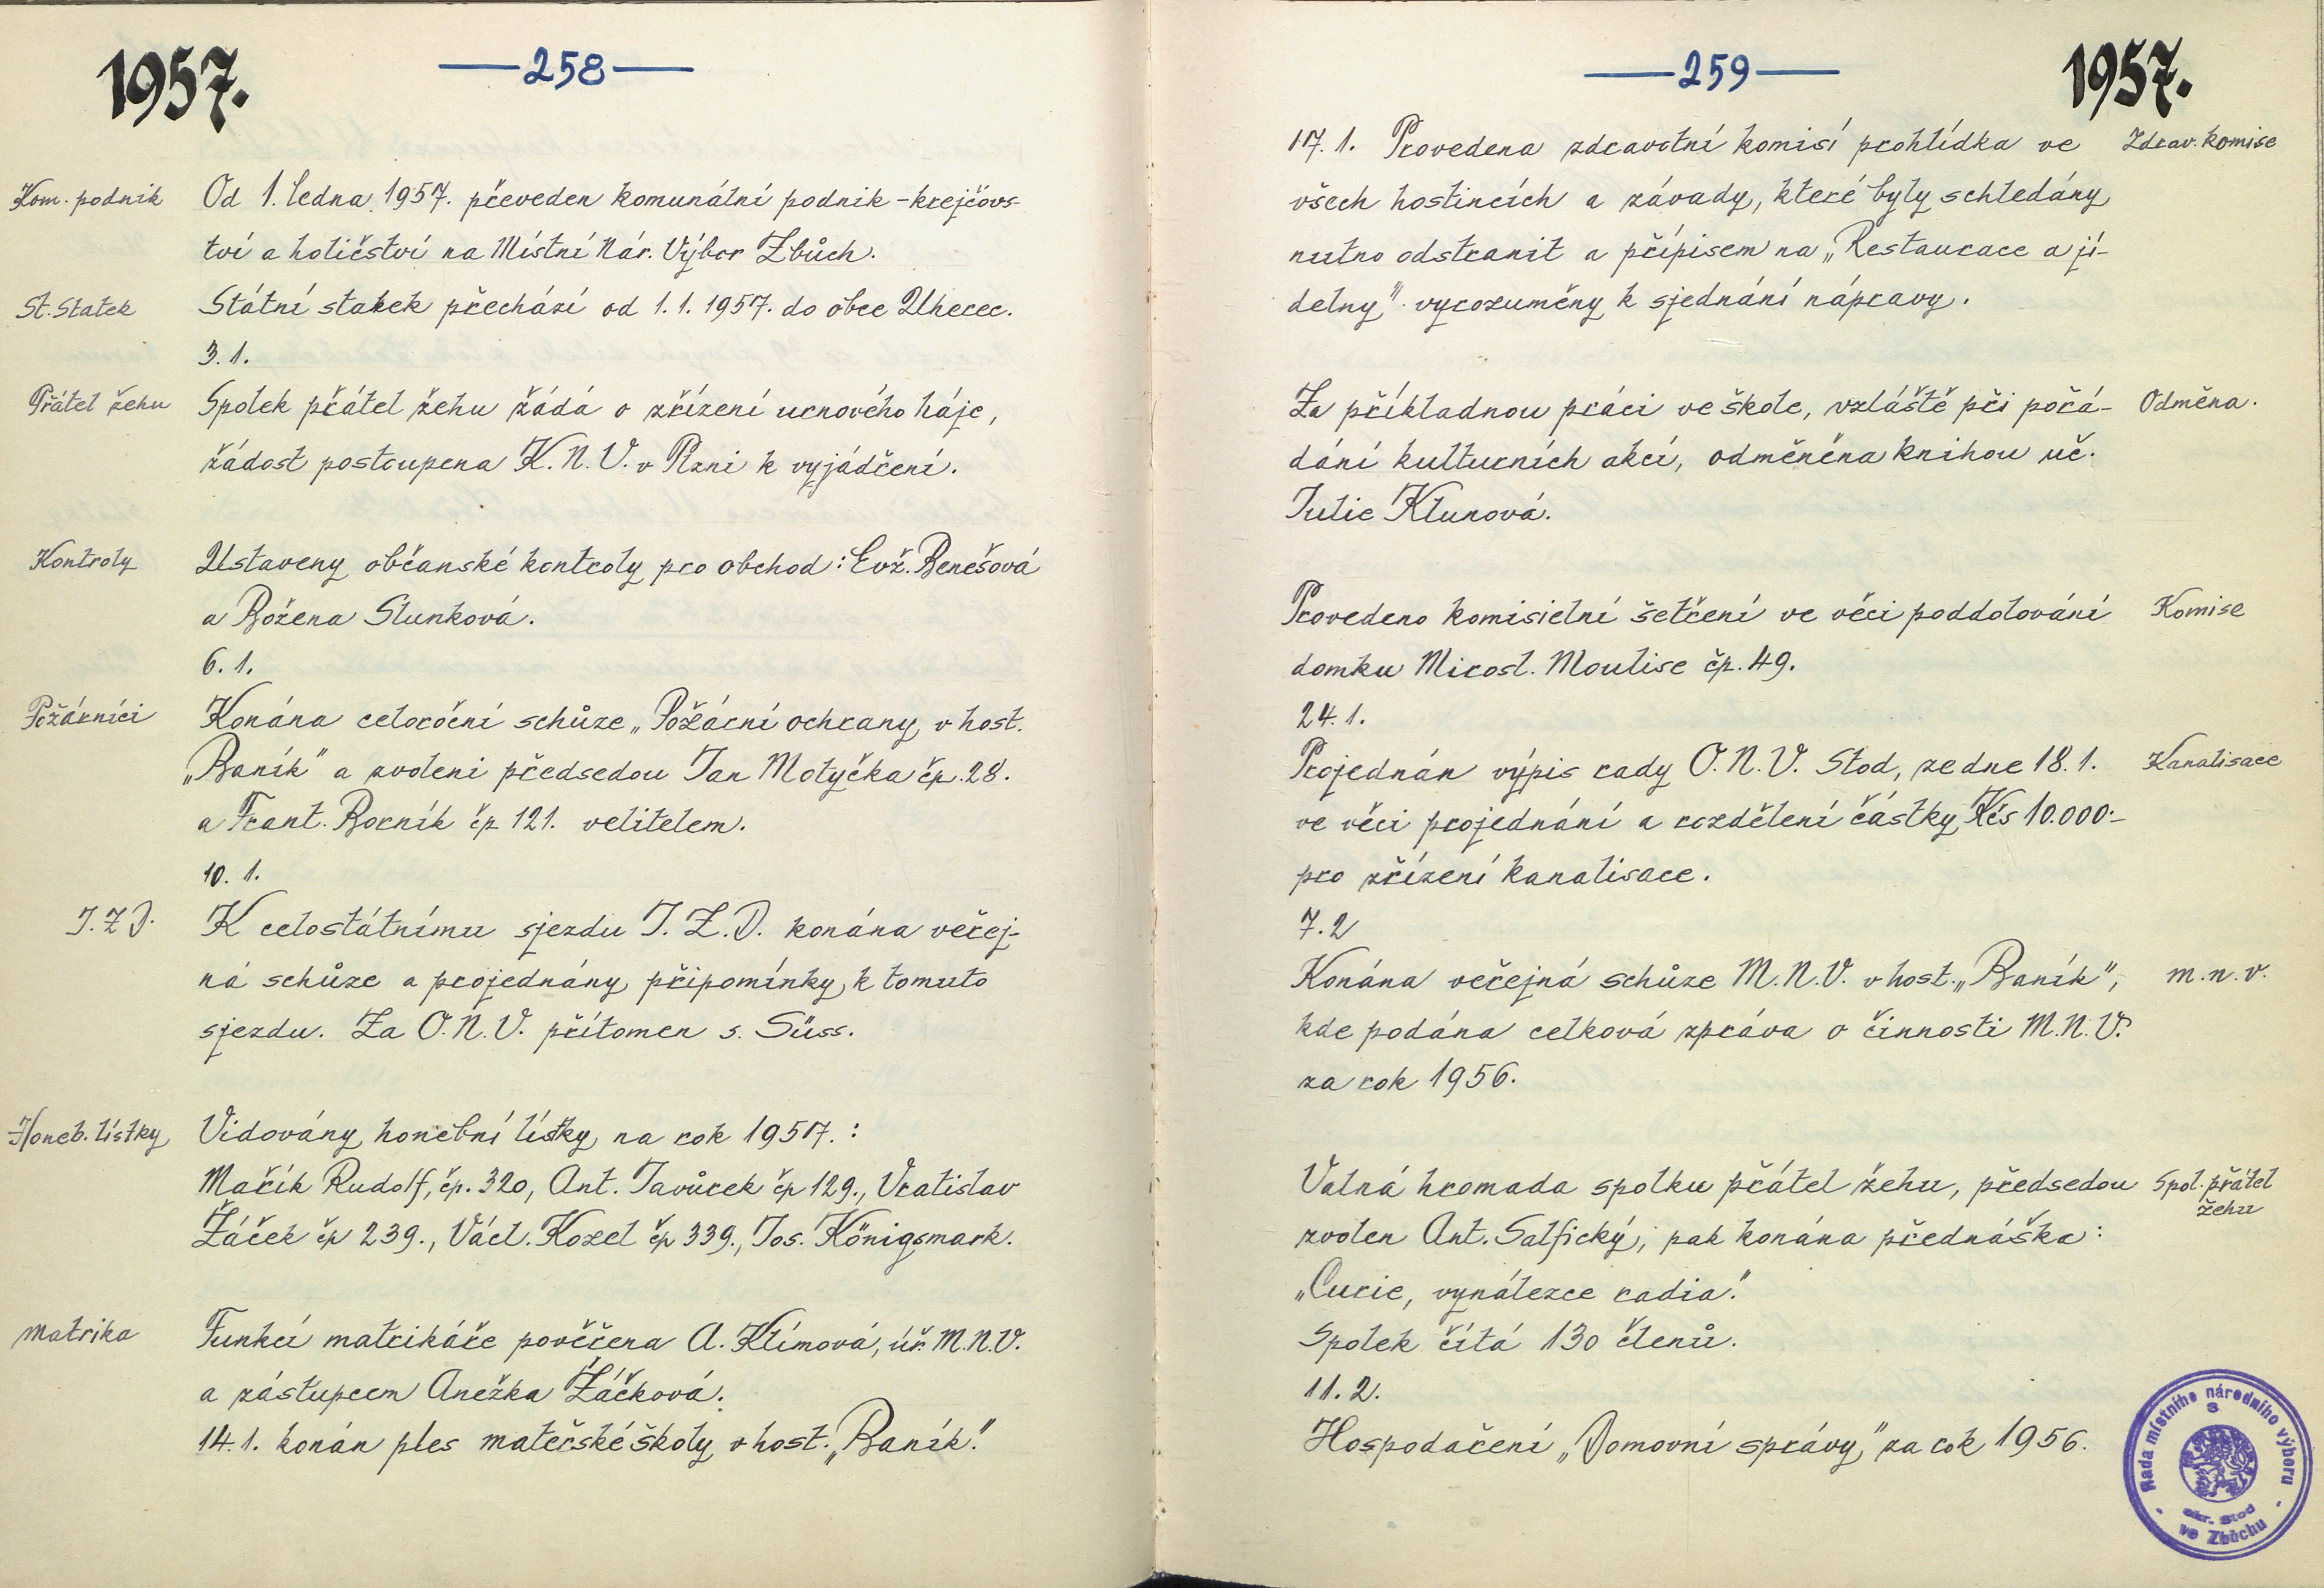 1957.
—258—
Kom. podnik
Od 1. ledna 1957. převeden komunální podnik - krejčovs-
tví a holičství na Místní Nár. Výbor Zbůch.
St. Statek
Státní statek přechází od 1.1. 1957. do obce Uherec.
3. 1.
Přátel žehu
Spolek přátel žehu žádá o zřízení urnového háje,
žádost postoupena K. N. V. v Plzni k vyjádření.
Kontroly
Ustaveny občanské kontroly pro obchod: Evž. Benešová
a Božena Slunková.
6. 1.
Požárníci
Konána celoroční schůze „Požární ochrany v host.
„Baník" a zvoleni předsedou Jan Motyčka čp. 28.
a Frant. Borník čp 121. velitelem.
10. 1.
J. Z D.
K celostátnímu sjezdu J. Z. D. konána veřej-
ná schůze a projednány připomínky k tomuto
sjezdu. Za O. N. V. přítomen s. Süss.
Honeb. lístky
Vidovány honební lístky na rok 1957. :
Mařík Rudolf, čp. 320, Ant. Javůrek čp 129., Vratislav
Žáček čp 239., Václ. Kozel čp 339., Jos. Königsmark.
Matrika
Funkcí matrikáře pověřena A. Klímová, úř. M.N.V.
a zástupcem Anežka Žáčková.
14. 1. konán ples mateřské školy v host. „Baník."
—259—
1957.
17. 1. Provedena zdravotní komisí prohlídka ve
Zdrav. komise
všech hostincích a závady, které byly schledány
nutno odstranit a přípisem na „Restaurace a jí-
delny" vyrozuměny k sjednání nápravy.
Za příkladnou práci ve škole, vzláště při pořá-
Odměna.
dání kulturních akcí, odměněna knihou uč.
Julie Klunová.
Provedeno komisielní šetření ve věci poddolování
Komise
domku Mirosl. Moulise čp. 49.
24. 1.
Projednán výpis rady O. N. V. Stod, ze dne 18. 1.
Kanalisace
ve věci projednání a rozdělení částky Kčs 10.000.-
pro zřízení kanalisace.
7. 2
Konána veřejná schůze M. N. V. v host. „Baník",
m. n. v.
kde podána celková zpráva o činnosti M. N. V.
za rok 1956.
Valná hromada spolku přátel žehu, předsedou
Spol. přátel
žehu
zvolen Ant. Salfický, pak konána přednáška:
„Curie, vynálezce radia."
Spolek čítá 130 členů.
11. 2.
Hospodaření „Domovní správy" za rok 1956.
Rada místního národního výboru
S
okr. Stod
ve Zbůchu